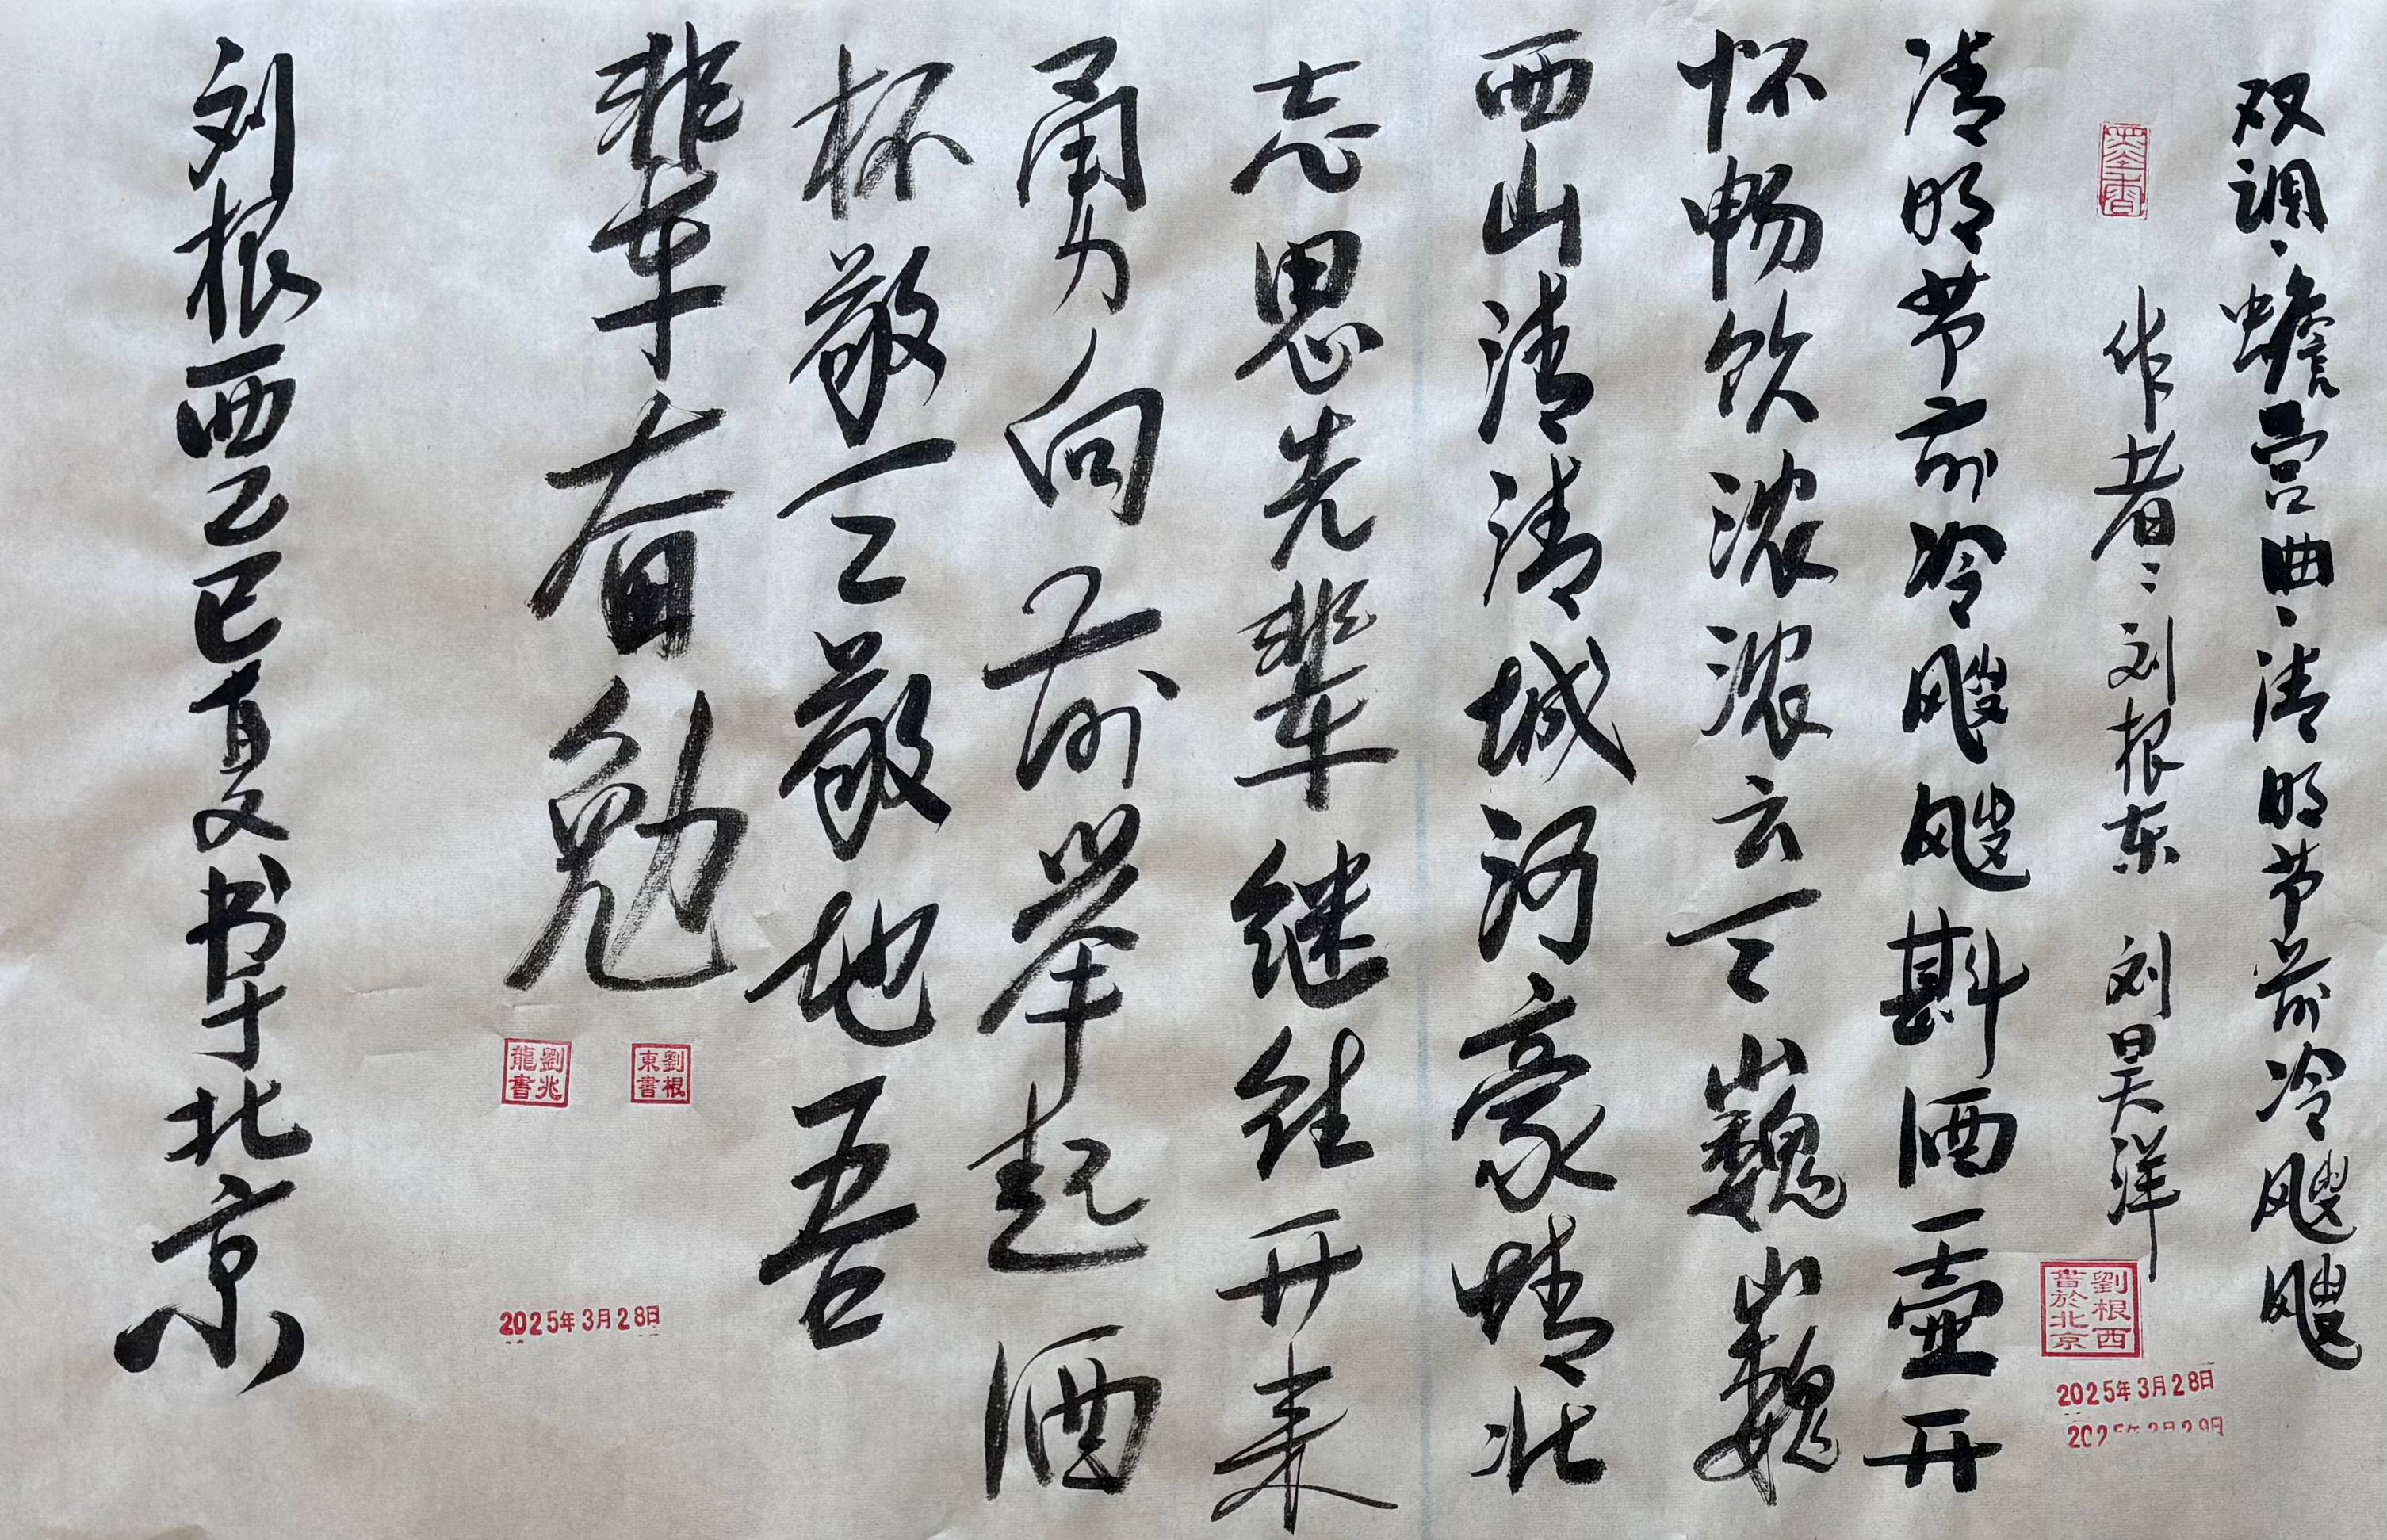 双调、蟾宫曲、清明节前冷飕飕
墨香
作者：刘根东 刘昊洋
劉根西
書於北京
2025年3月28日
清明节前冷飕飕斟酒一壶开
怀畅饮浓浓云云巍巍
西山清清城河豪情壮
志思先辈继往开来
勇向前举起酒
杯敬天敬地吾
辈奋勉
劉根
東書
劉兆
龍書
2025年3月28日
刘根西乙巳夏书于北京